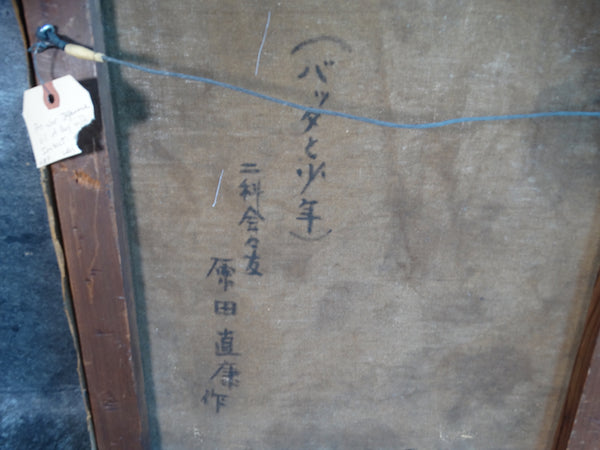 (バッタと少年)
二科会々友
原田直康作